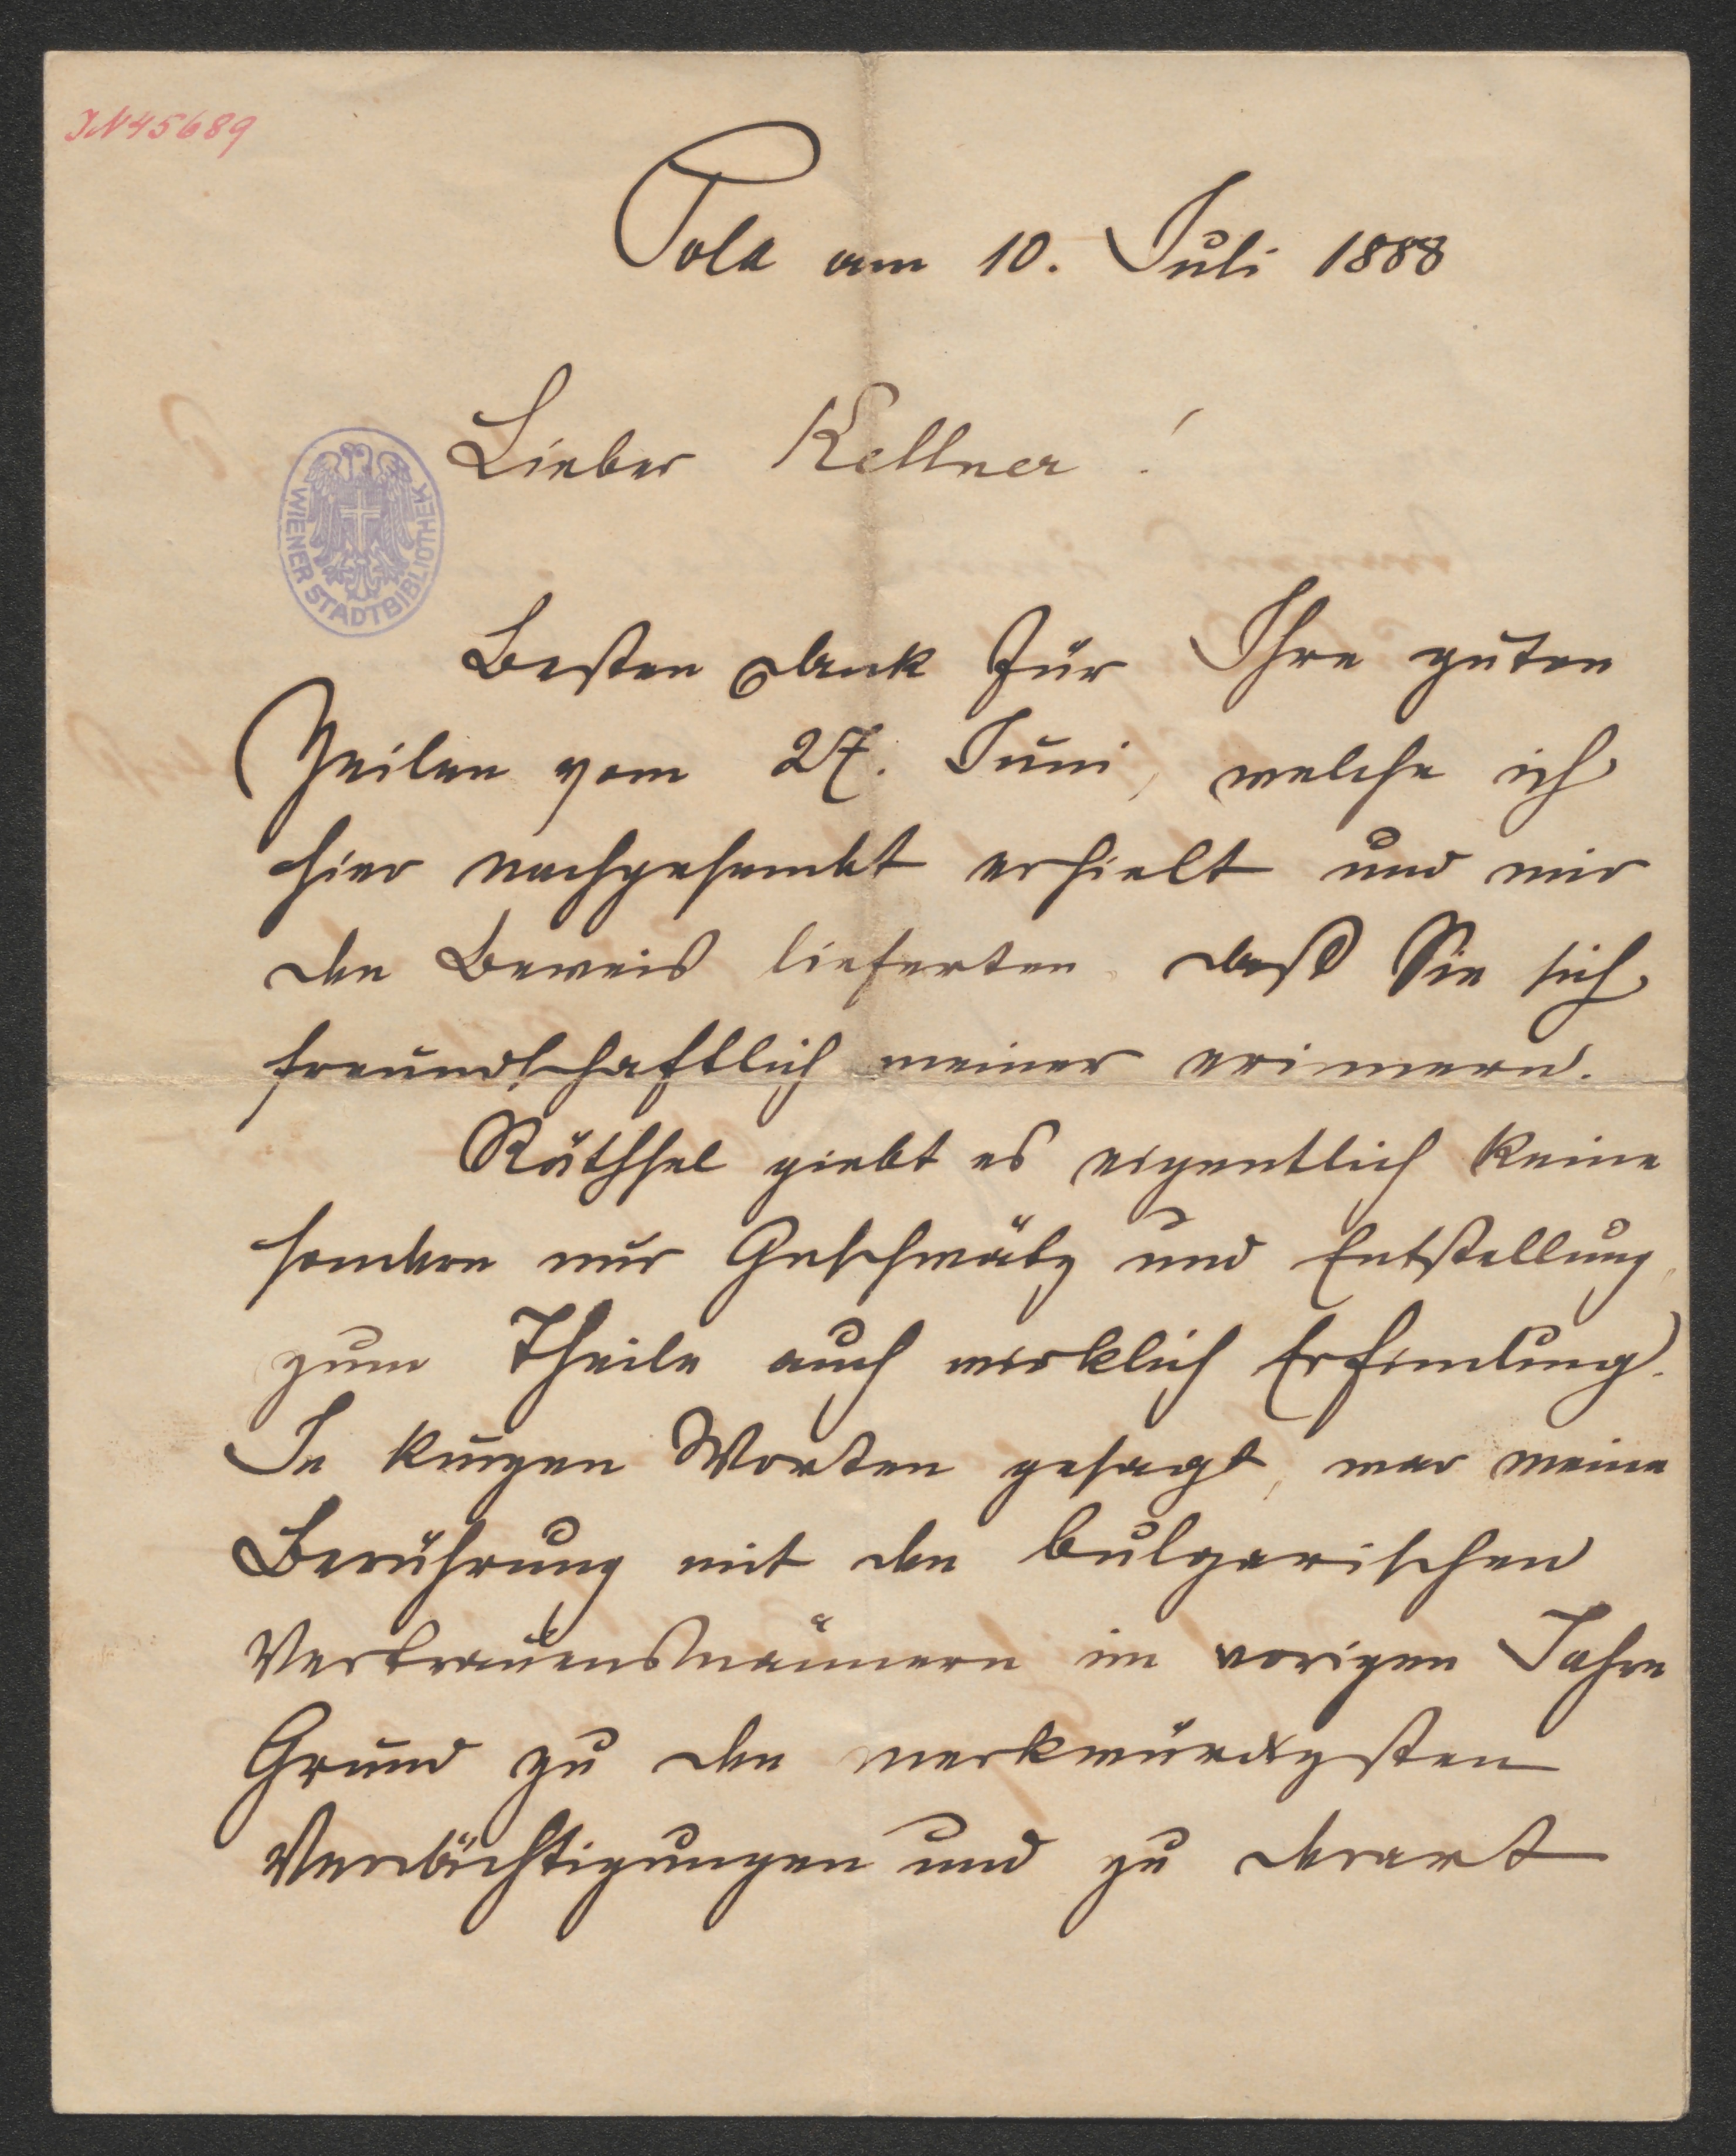 IN 45689
Pola am 10. Juli 1888
Lieber Kellner!
WIENER STADTBIBLIOTHEK
Besten Dank für Ihre guten
Zeilen vom 27. Juni, welche ich
hier nachgesendet erhielt und mir
den Beweis lieferten, daß Sie sich
freundschaftlich meiner erinnern.
Räthsel giebt es eigentlich keine
sondern nur Geschwätz und Entstellung,
zum Theile auch wirklich Erfindung.
In kurzen Worten gesagt, war meine
Berührung mit den bulgarischen
Vertrauensmännern im vorigen Jahre
Grund zu den merkwürdigsten
Verdächtigungen und zu derart